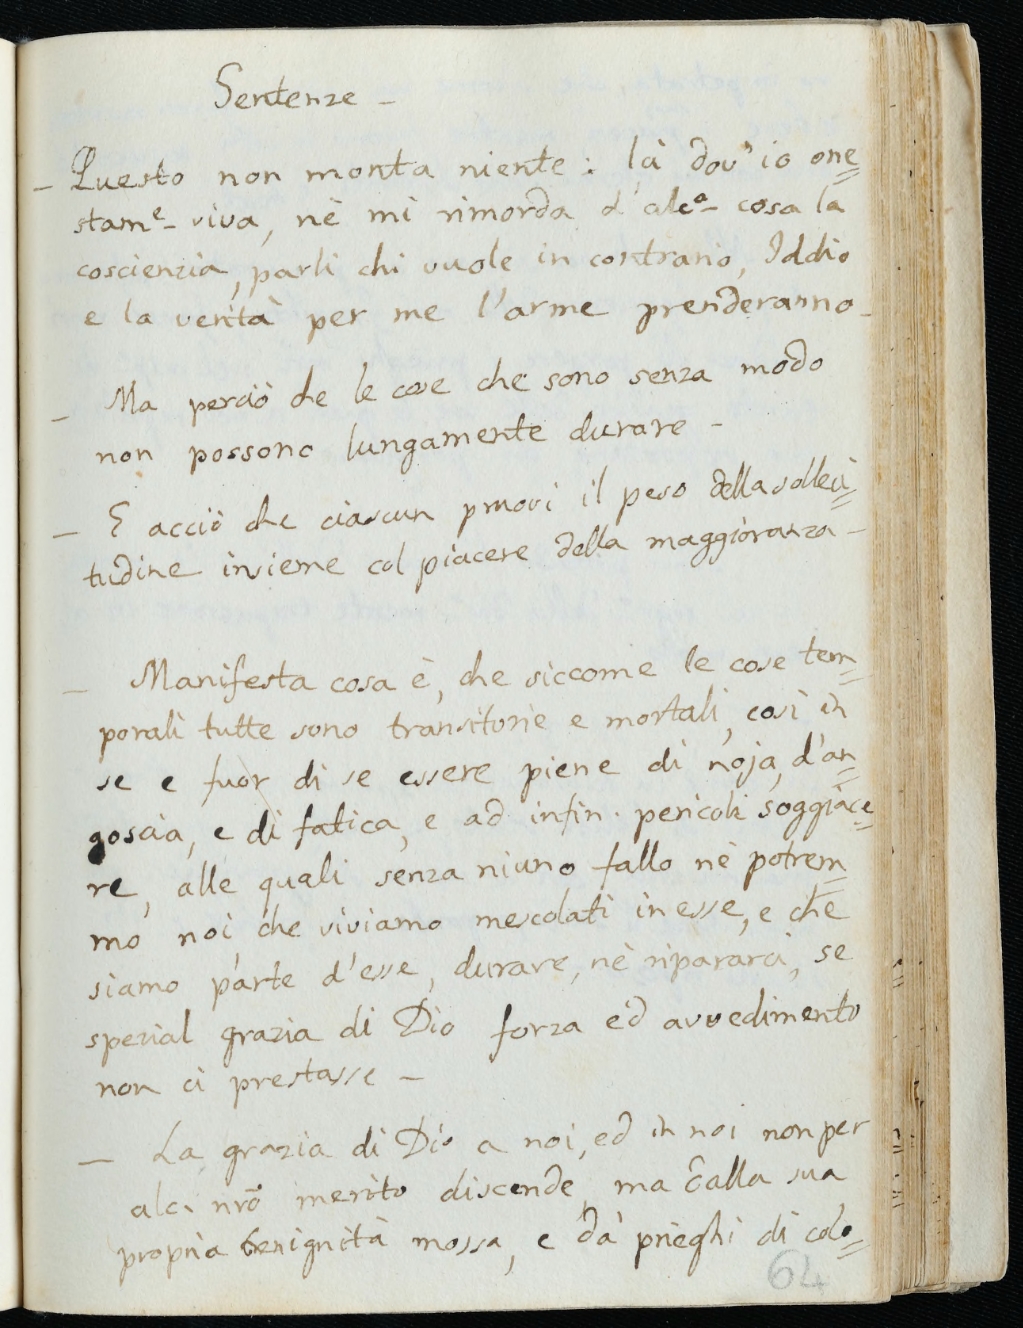 Sentenze -
- Questo non monta niente: là dov'io one=
stam.e viva, nè mi rimorda d'alc.a cosa la
coscienzia, parli chi vuole in contrario, Iddio
e la verità per me l'arme prenderanno-
- Ma perciò che le cose che sono senza modo
non possono lungamente durare -
- E acciò che ciascun pruovi il peso della solleci=
tudine insieme col piacere della maggioranza -
- Manifesta cosa è, che siccome le cose tem=
porali tutte sono transitorie e mortali, così in
se e fuor di se essere piene di noja, d'an=
goscia, e di fatica, e ad infin. pericoli soggiace=
re, alle quali senza niuno fallo nè potrem=
mo noi, che viviamo mescolati in esse, e che
siamo parte d'esse, durare, nè ripararci, se
spezial grazia di Dio forza ed avvedimento
non ci prestasse -
- La grazia di Dio a noi, ed in noi non per
alc. nrõ merito discende, ma dalla sua
propria benignità mossa, e da prieghi di colo=
64